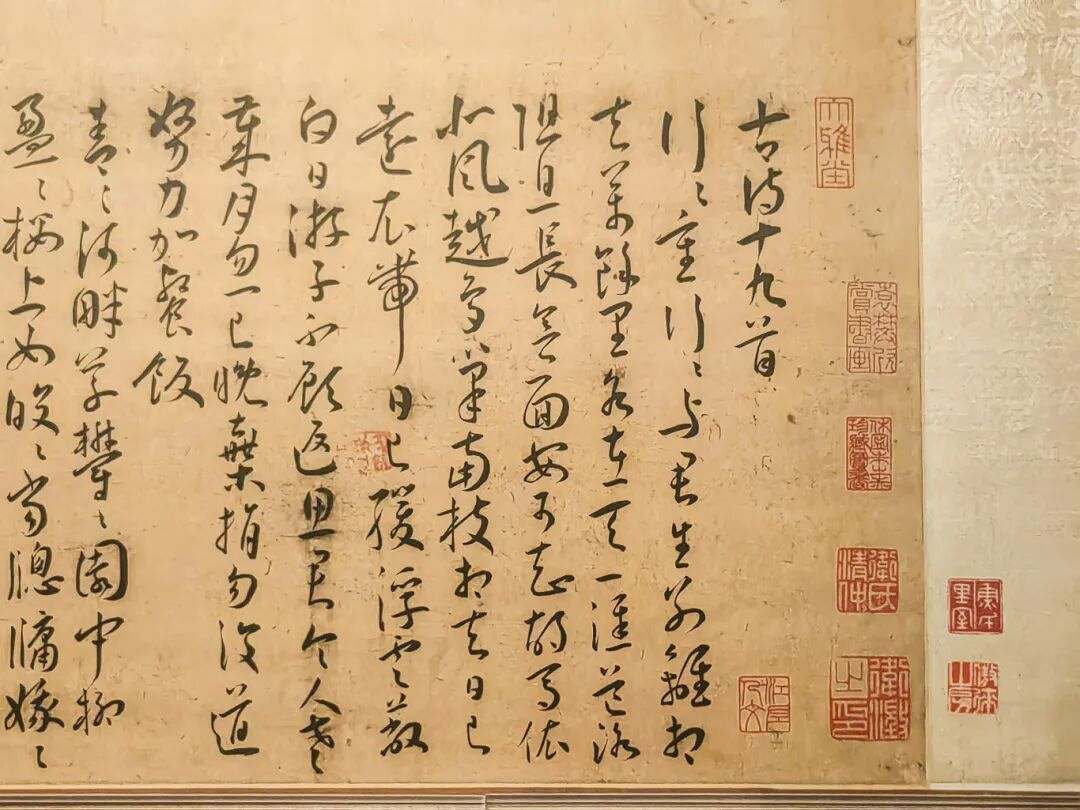 古詩十九首
行〻重行〻與君生別離相
去萬餘里各在天一涯道路
阻且長會面安可知胡馬依
北風越鳥巢南枝相去日已
遠衣帶日已緩浮雲蔽
白日游子不顧返思君令人老
歲月忽已晚棄捐勿復道
努力加餐飯
青〻河畔草鬱〻園中柳
盈〻樓上女皎〻當牕牖娥〻
休寧朱之赤珍藏圖書